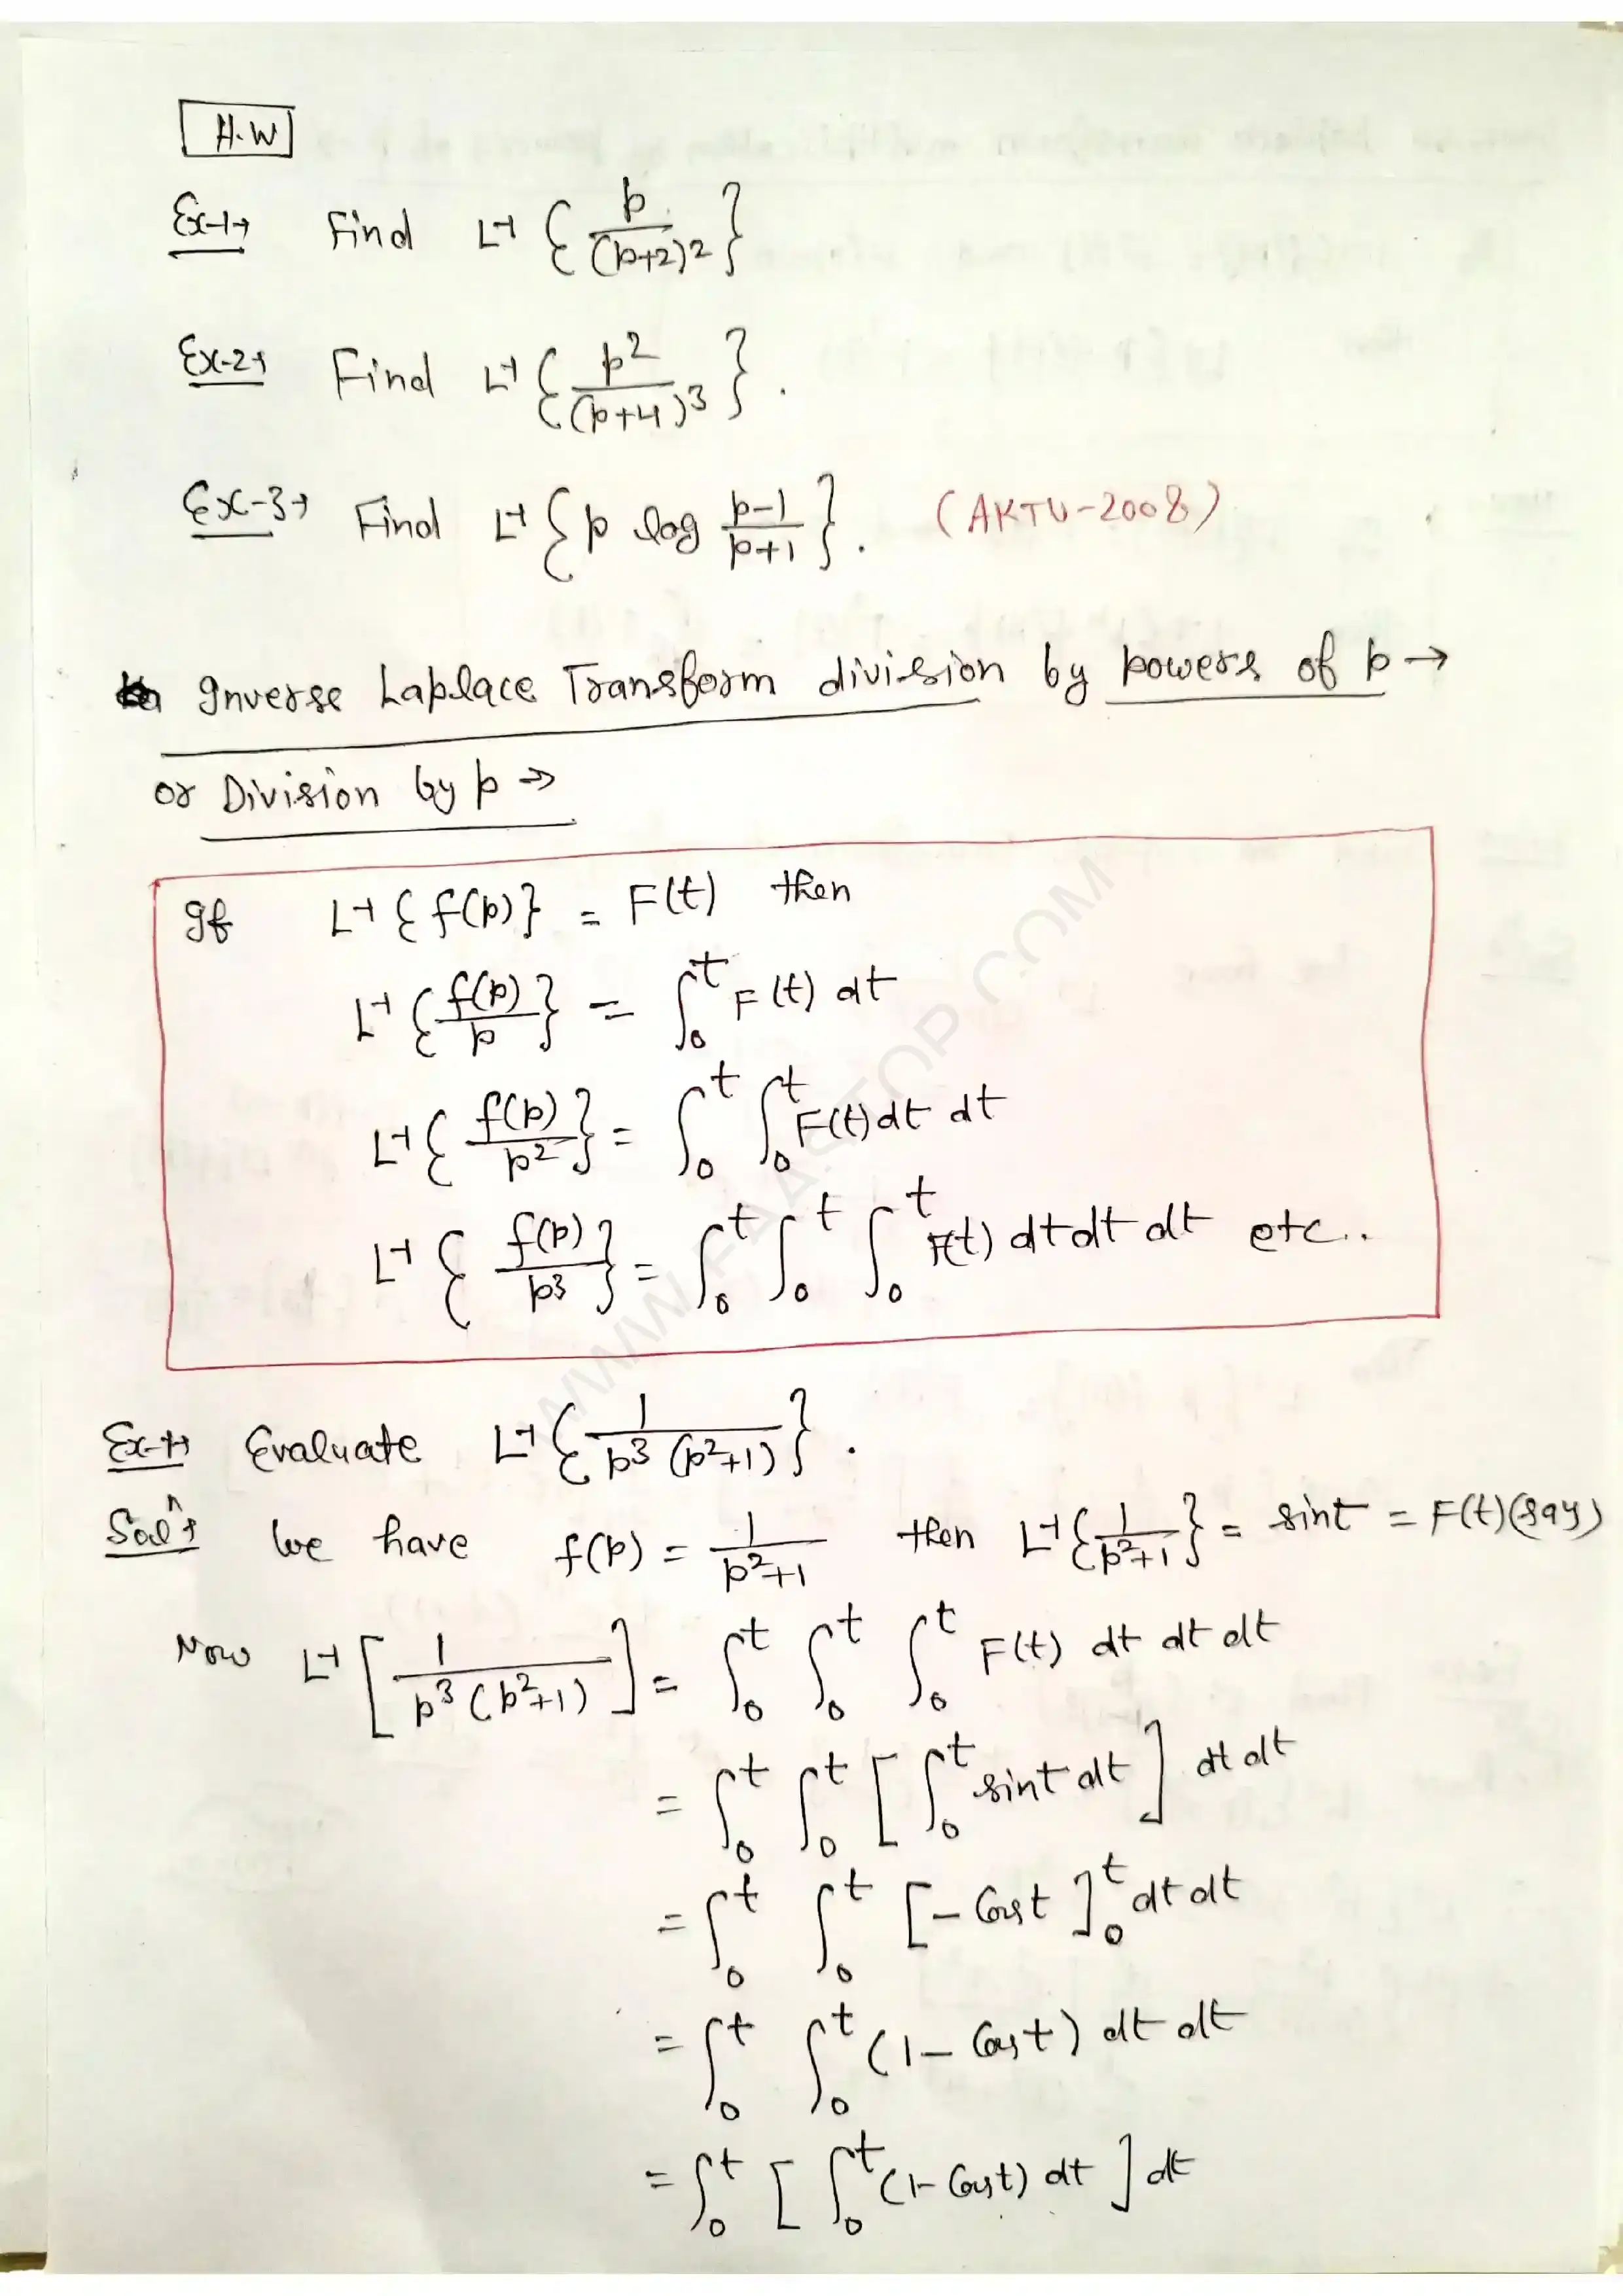 H.W
Ex-1→ Find L⁻¹ { p / (p+2)² }
Ex-2→ Find L⁻¹ { p² / (p+4)³ }.
Ex-3→ Find L⁻¹ { p log (p-1)/(p+1) }. (AKTU-2008)
Inverse Laplace Transform division by powers of p →
or Division by p →
If L⁻¹ { f(p) } = F(t) then
L⁻¹ { f(p)/p } = ∫₀ᵗ F(t) dt
L⁻¹ { f(p)/p² } = ∫₀ᵗ ∫₀ᵗ F(t) dt dt
L⁻¹ { f(p)/p³ } = ∫₀ᵗ ∫₀ᵗ ∫₀ᵗ F(t) dt dt dt etc..
Ex-1→ Evaluate L⁻¹ { 1 / p³ (p²+1) }.
Solⁿ→ We have f(p) = 1/(p²+1) then L⁻¹ { 1/(p²+1) } = sint = F(t) (say)
Now L⁻¹ [ 1 / p³ (p²+1) ] = ∫₀ᵗ ∫₀ᵗ ∫₀ᵗ F(t) dt dt dt
= ∫₀ᵗ ∫₀ᵗ [ ∫₀ᵗ sint dt ] dt dt
= ∫₀ᵗ ∫₀ᵗ [ - Cost ]₀ᵗ dt dt
= ∫₀ᵗ ∫₀ᵗ (1 - Cost) dt dt
= ∫₀ᵗ [ ∫₀ᵗ (1- Cost) dt ] dt
WWW.FAASTOP.COM